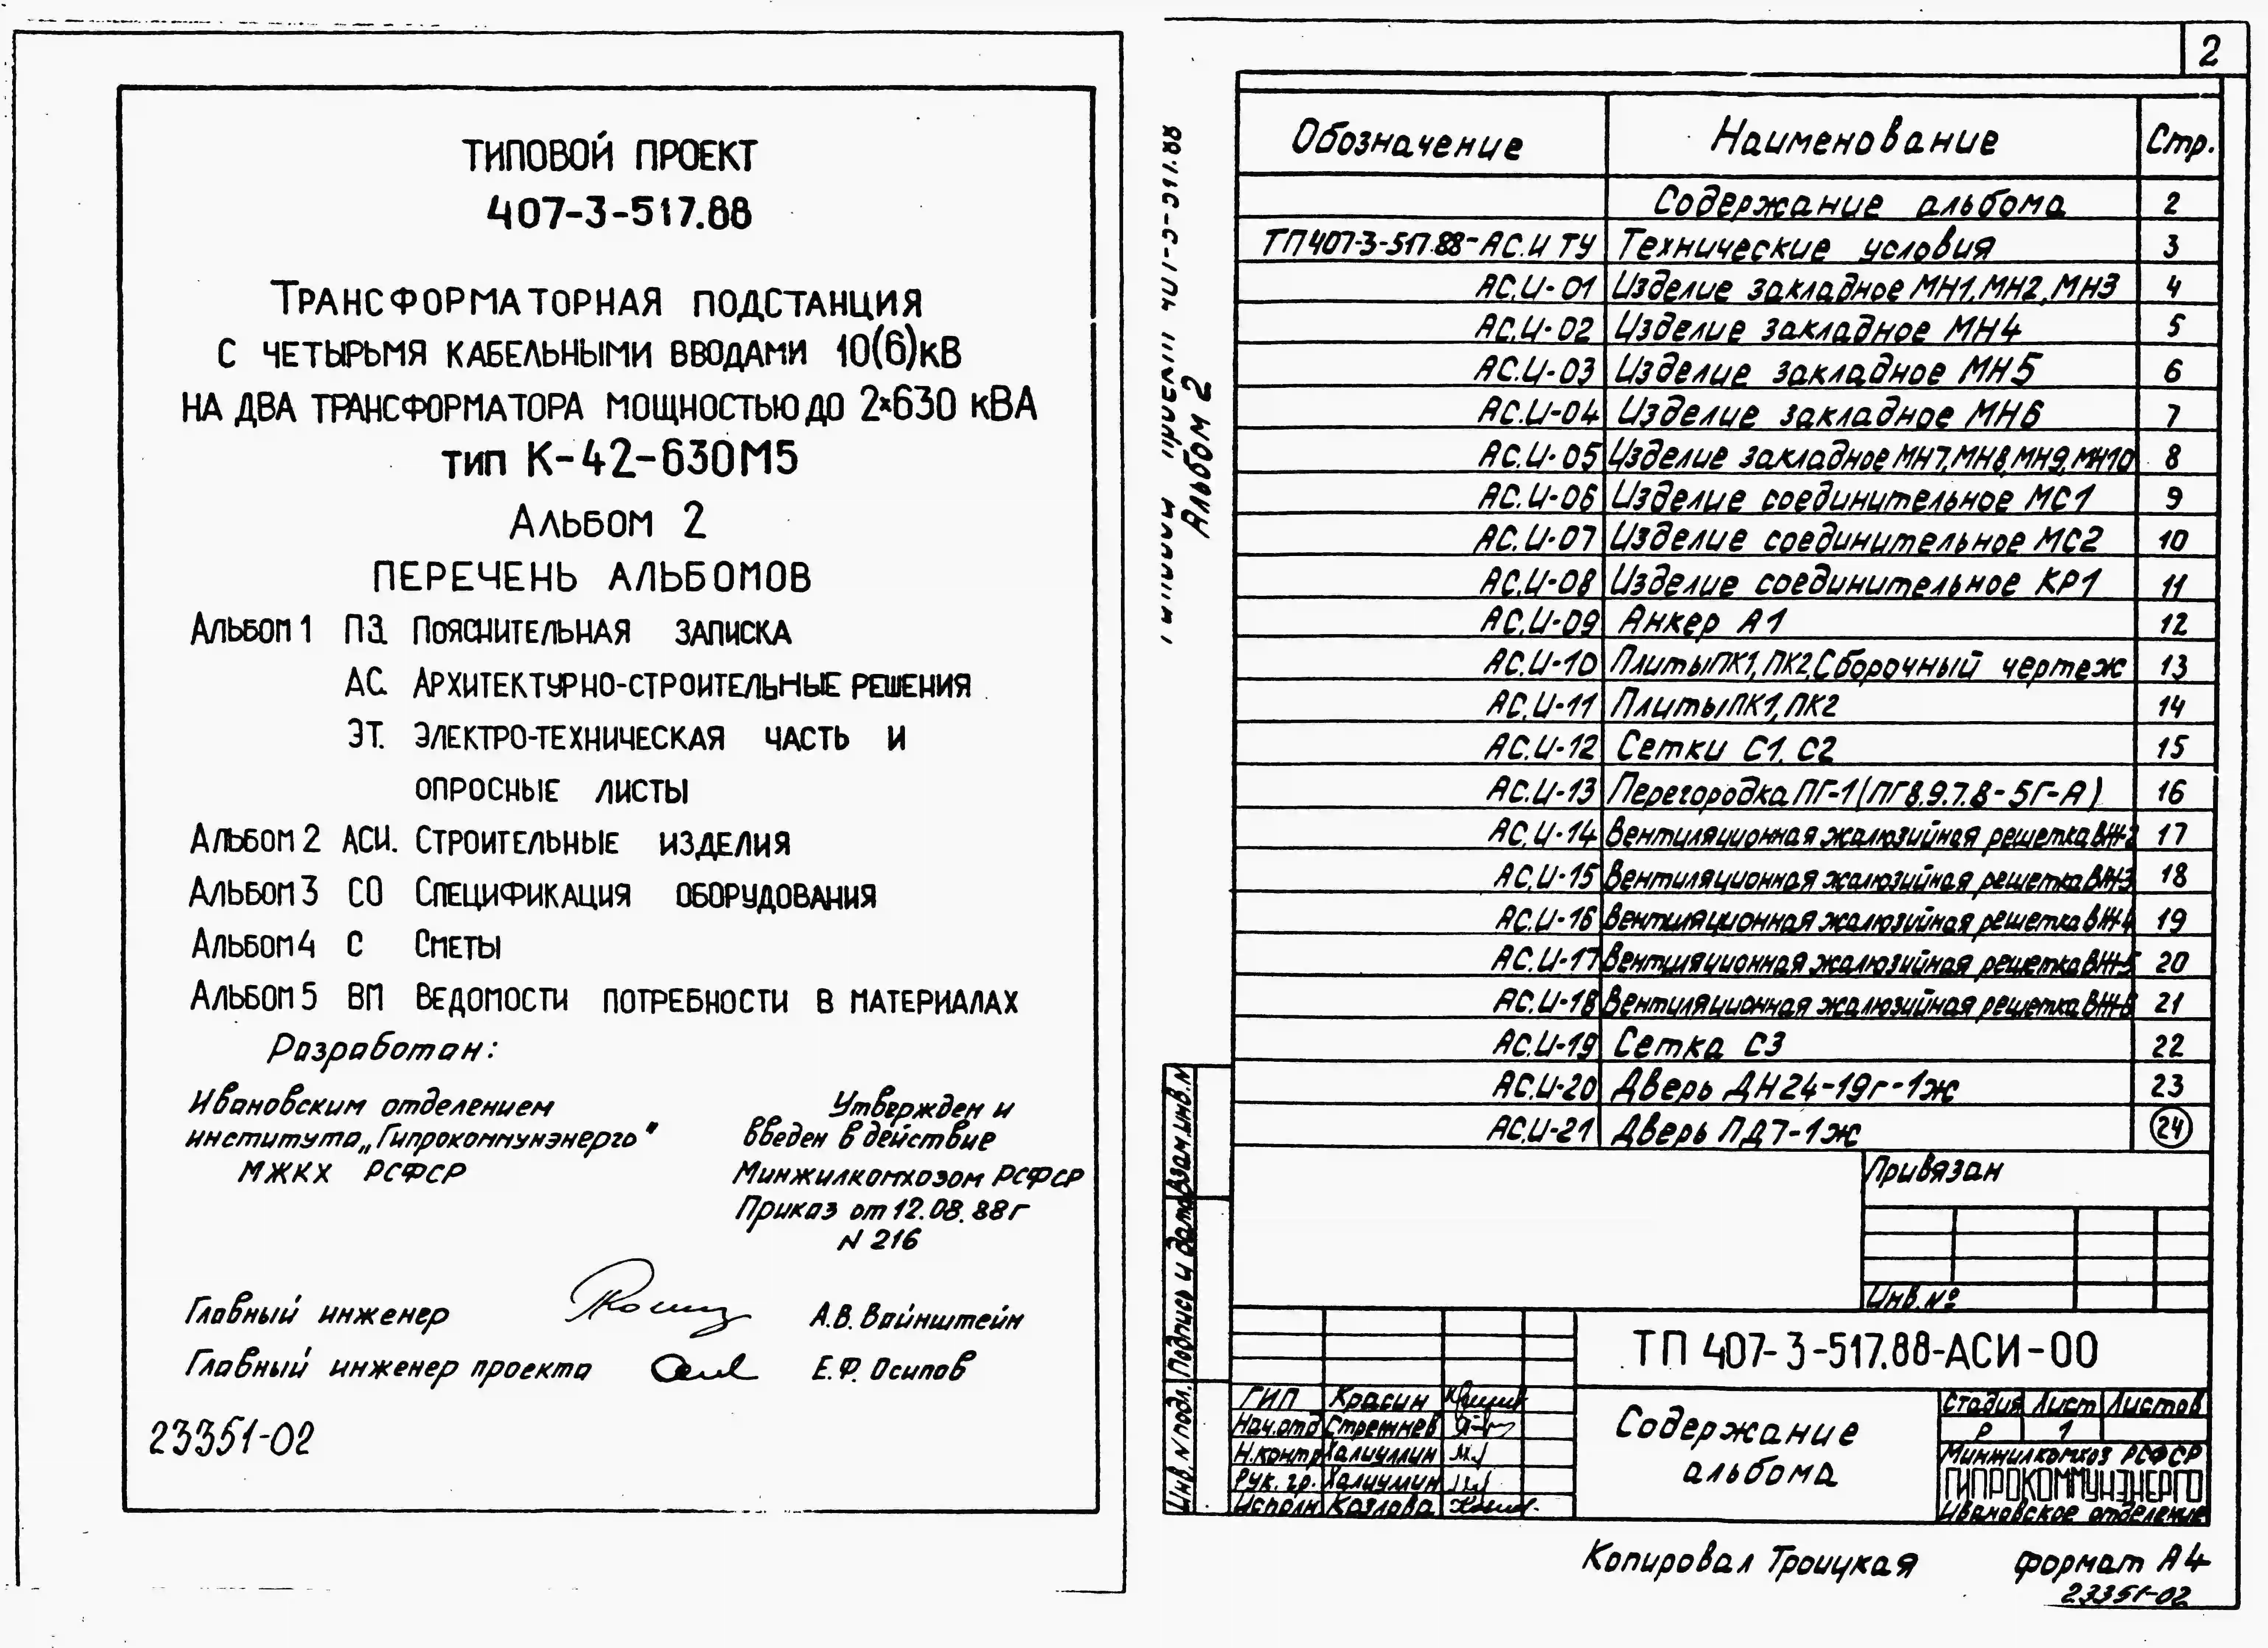 ТИПОВОЙ ПРОЕКТ
407-3-517.88
ТРАНСФОРМАТОРНАЯ ПОДСТАНЦИЯ
С ЧЕТЫРЬМЯ КАБЕЛЬНЫМИ ВВОДАМИ 10(6)кВ
НА ДВА ТРАНСФОРМАТОРА МОЩНОСТЬЮ ДО 2×630 кВА
ТИП К-42-630М5
АЛЬБОМ 2
ПЕРЕЧЕНЬ АЛЬБОМОВ
АЛЬБОМ 1 ПЗ. ПОЯСНИТЕЛЬНАЯ ЗАПИСКА
АС. АРХИТЕКТУРНО-СТРОИТЕЛЬНЫЕ РЕШЕНИЯ
ЭТ. ЭЛЕКТРО-ТЕХНИЧЕСКАЯ ЧАСТЬ И
ОПРОСНЫЕ ЛИСТЫ
АЛЬБОМ 2 АСИ. СТРОИТЕЛЬНЫЕ ИЗДЕЛИЯ
АЛЬБОМ 3 СО СПЕЦИФИКАЦИЯ ОБОРУДОВАНИЯ
АЛЬБОМ 4 С СМЕТЫ
АЛЬБОМ 5 ВМ ВЕДОМОСТИ ПОТРЕБНОСТИ В МАТЕРИАЛАХ
Разработан:
Ивановским отделением
института „Гипрокоммунэнерго"
МЖКХ РСФСР
Утвержден и
введен в действие
Минжилкомхозом РСФСР
Приказ от 12.08.88г
N 216
Главный инженер А.В. Вайнштейн
Главный инженер проекта Е.Ф. Осипов
23351-02
2
Альбом 2
Обозначение Наименование Стр.
Содержание альбома 2
ТП407-3-517.88-АС.И ТУ Технические условия 3
АС.И-01 Изделие закладное МН1, МН2, МН3 4
АС.И-02 Изделие закладное МН4 5
АС.И-03 Изделие закладное МН5 6
АС.И-04 Изделие закладное МН6 7
АС.И-05 Изделие закладное МН7, МН8, МН9, МН10 8
АС.И-06 Изделие соединительное МС1 9
АС.И-07 Изделие соединительное МС2 10
АС.И-08 Изделие соединительное КР1 11
АС.И-09 Анкер А1 12
АС.И-10 Плиты ПК1, ПК2. Сборочный чертеж 13
АС.И-11 Плиты ПК1, ПК2 14
АС.И-12 Сетки С1, С2 15
АС.И-13 Перегородка ПГ-1 (ПГ8.9.7.8-5Г-А) 16
АС.И-14 Вентиляционная жалюзийная решетка ВЖ-2 17
АС.И-15 Вентиляционная жалюзийная решетка ВЖ-3 18
АС.И-16 Вентиляционная жалюзийная решетка ВЖ-4 19
АС.И-17 Вентиляционная жалюзийная решетка ВЖ-5 20
АС.И-18 Вентиляционная жалюзийная решетка ВЖ-6 21
АС.И-19 Сетка С3 22
АС.И-20 Дверь ДН24-19г-1ж 23
АС.И-21 Дверь ПД7-1ж 24
Привязан
Инв.№
Взам.инв.N
Подпись и дата
Инв. N подл.
ТП 407-3-517.88-АСИ-00
ГИП Красин
Нач.отд Стрежнев
Н.контр Халиуллин
Рук. гр. Халиуллин
Исполн Козлова
Содержание
альбома
Стадия Лист Листов
Р 1
Минжилкомхоз РСФСР
ГИПРОКОММУНЭНЕРГО
Ивановское отделение
Копировал Троицкая формат А4
23351-02